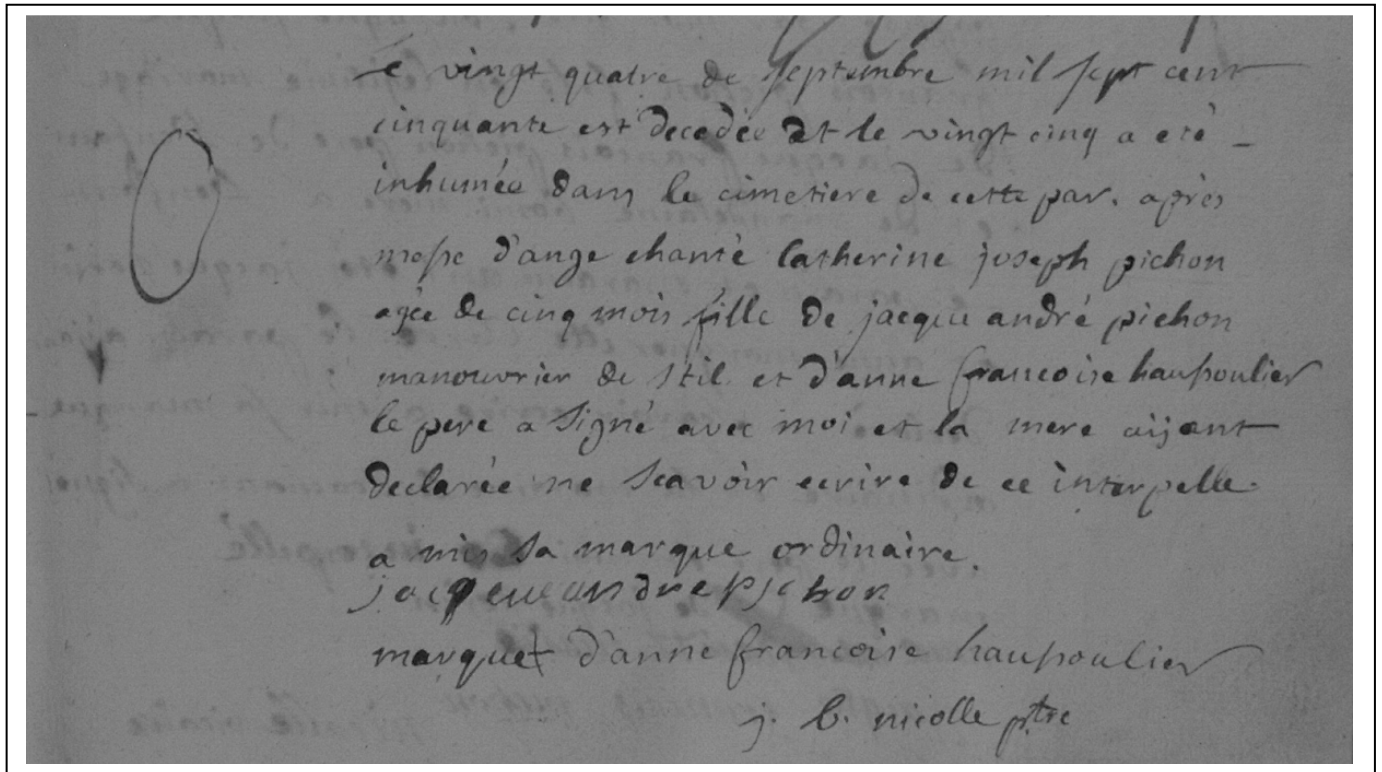 Le vingt quatre de septembre mil sept cent
cinquante est decedée et le vingt cinq a eté
inhumée dans le cimetiere de cette par. après
messe d'ange chanté Catherine joseph pichon
agée de cinq mois fille de jacque andré pichon
manouvrier de stil et d'anne francoise haussoulier
le pere a signé avec moi et la mere aijant
declarée ne scavoir ecrire de ce interpelle
a mis sa marque ordinaire.
jacqeue andre pichon
marque + d'anne francoise haussoulier
j. b. nicolle ptre